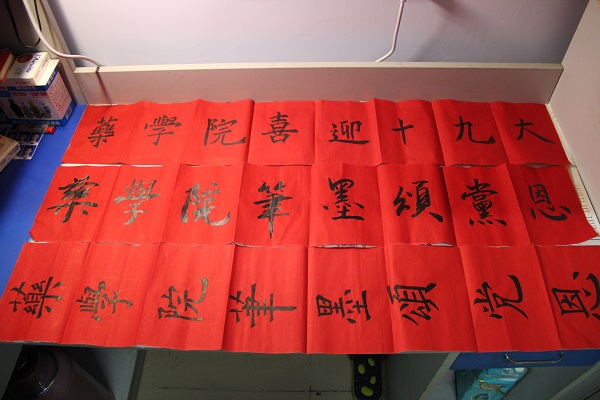 藥學院喜迎十九大
藥學院筆墨頌黨恩
藥學院筆墨頌党恩